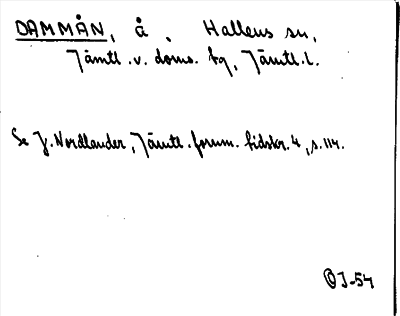 DAMMÅN, å. Hallens sn,
Jämtl. v. doms. fq, Jämtl. l.
Se J. Nordlander, Jämtl. fornm. tidskr. 4, s. 114.
OJ-54